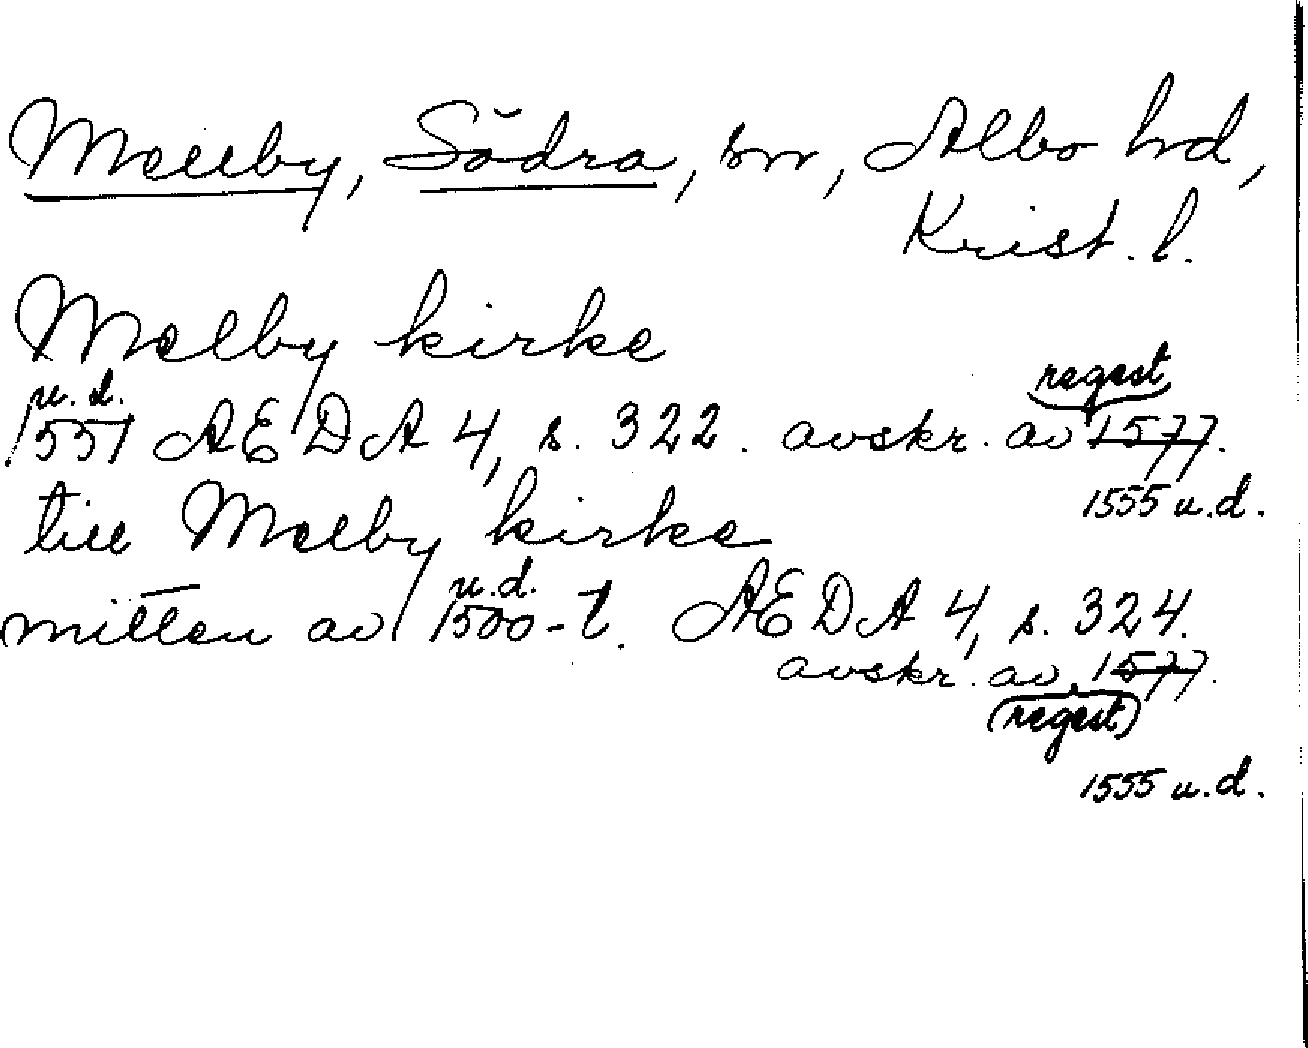 Mellby, Södra, sn, Albo hd,
Krist. l.
Melby kirke
u. d. regest
1551 AEDA 4, s. 322. avskr. av 1577.
1555 u.d.
till Melby kirke
u.d.
mitten av 1500-t. AEDA 4, s. 324.
avskr. av 1577.
(regest)
1555 u.d.